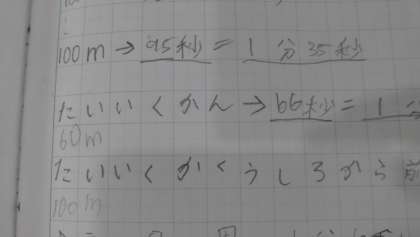 100m→95秒=1分35秒
たいいくかん→66秒=1分
60m
たいいくかくうしろから前
100m